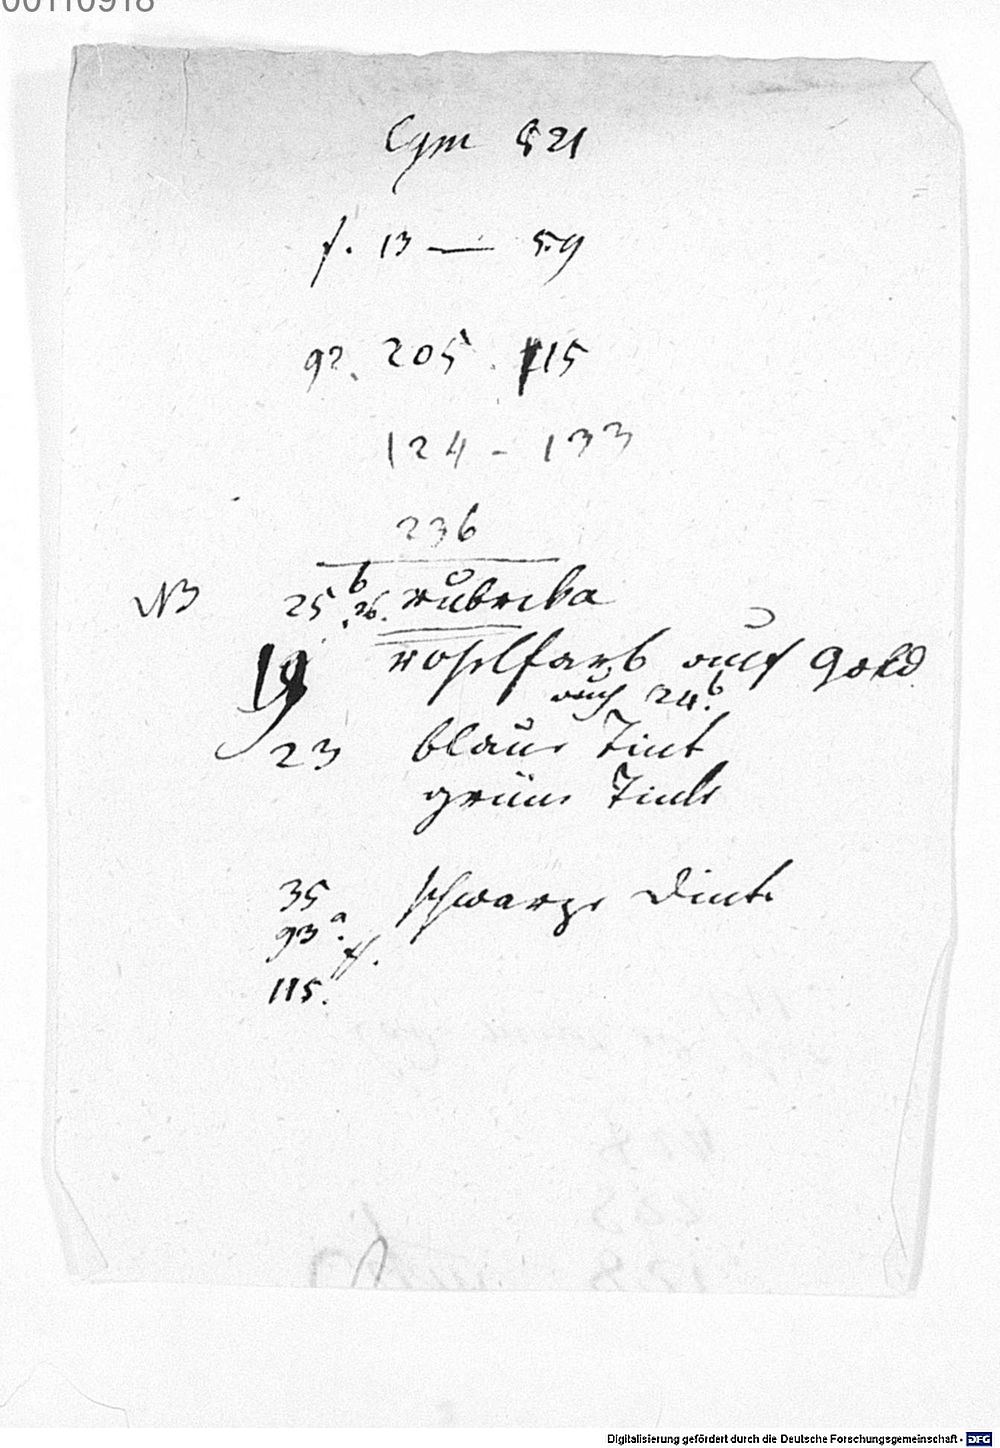 00110918
Cgm 821
f. 13 — 59
92. 205. 115
124 - 133
236
NB 25b. 26. rubrika
19 roselfarb auf Gold
auch 24b.
23 blaue Tint
grüne Tint
35 schwarze Dinte
93a. ff.
115.
Digitalisierung gefördert durch die Deutsche Forschungsgemeinschaft - DFG